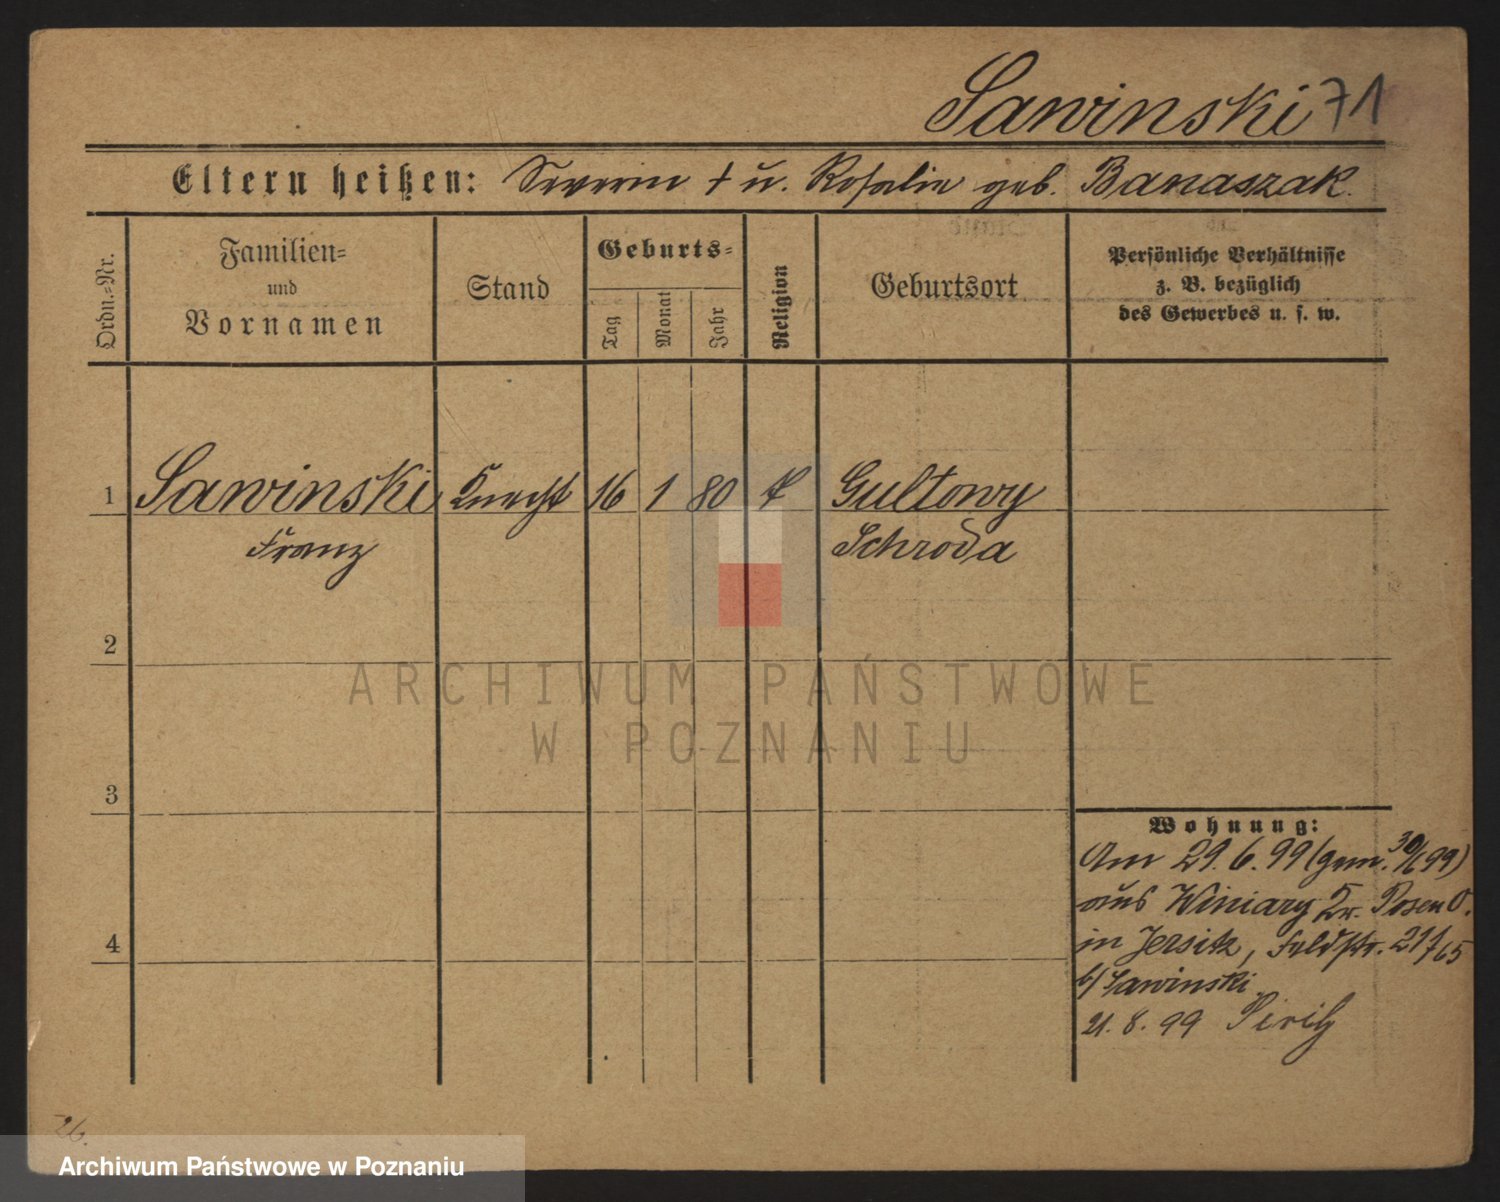 Sawinski 71
Eltern heißen: Severin † u. Rosalie geb. Banaszak.
Ordn.-Nr.
Familien-
und
Vornamen
Stand
Geburts-
Tag
Monat
Jahr
Religion
Geburtsort
Persönliche Verhältnisse
z. B. bezüglich
des Gewerbes u. s. w.
1 Sawinski Knecht 16 1 80 k Gultowy
Franz Schroda
2
3
4
Wohnung:
Am 29.6.99 (gem. 30/6 99)
aus Winiary Kr. Posen O.
in Jersitz, Feldstr. 21
b/ Sawinski
21. 8. 99
26.
ARCHIWUM PAŃSTWOWE
W POZNANIU
Archiwum Państwowe w Poznaniu